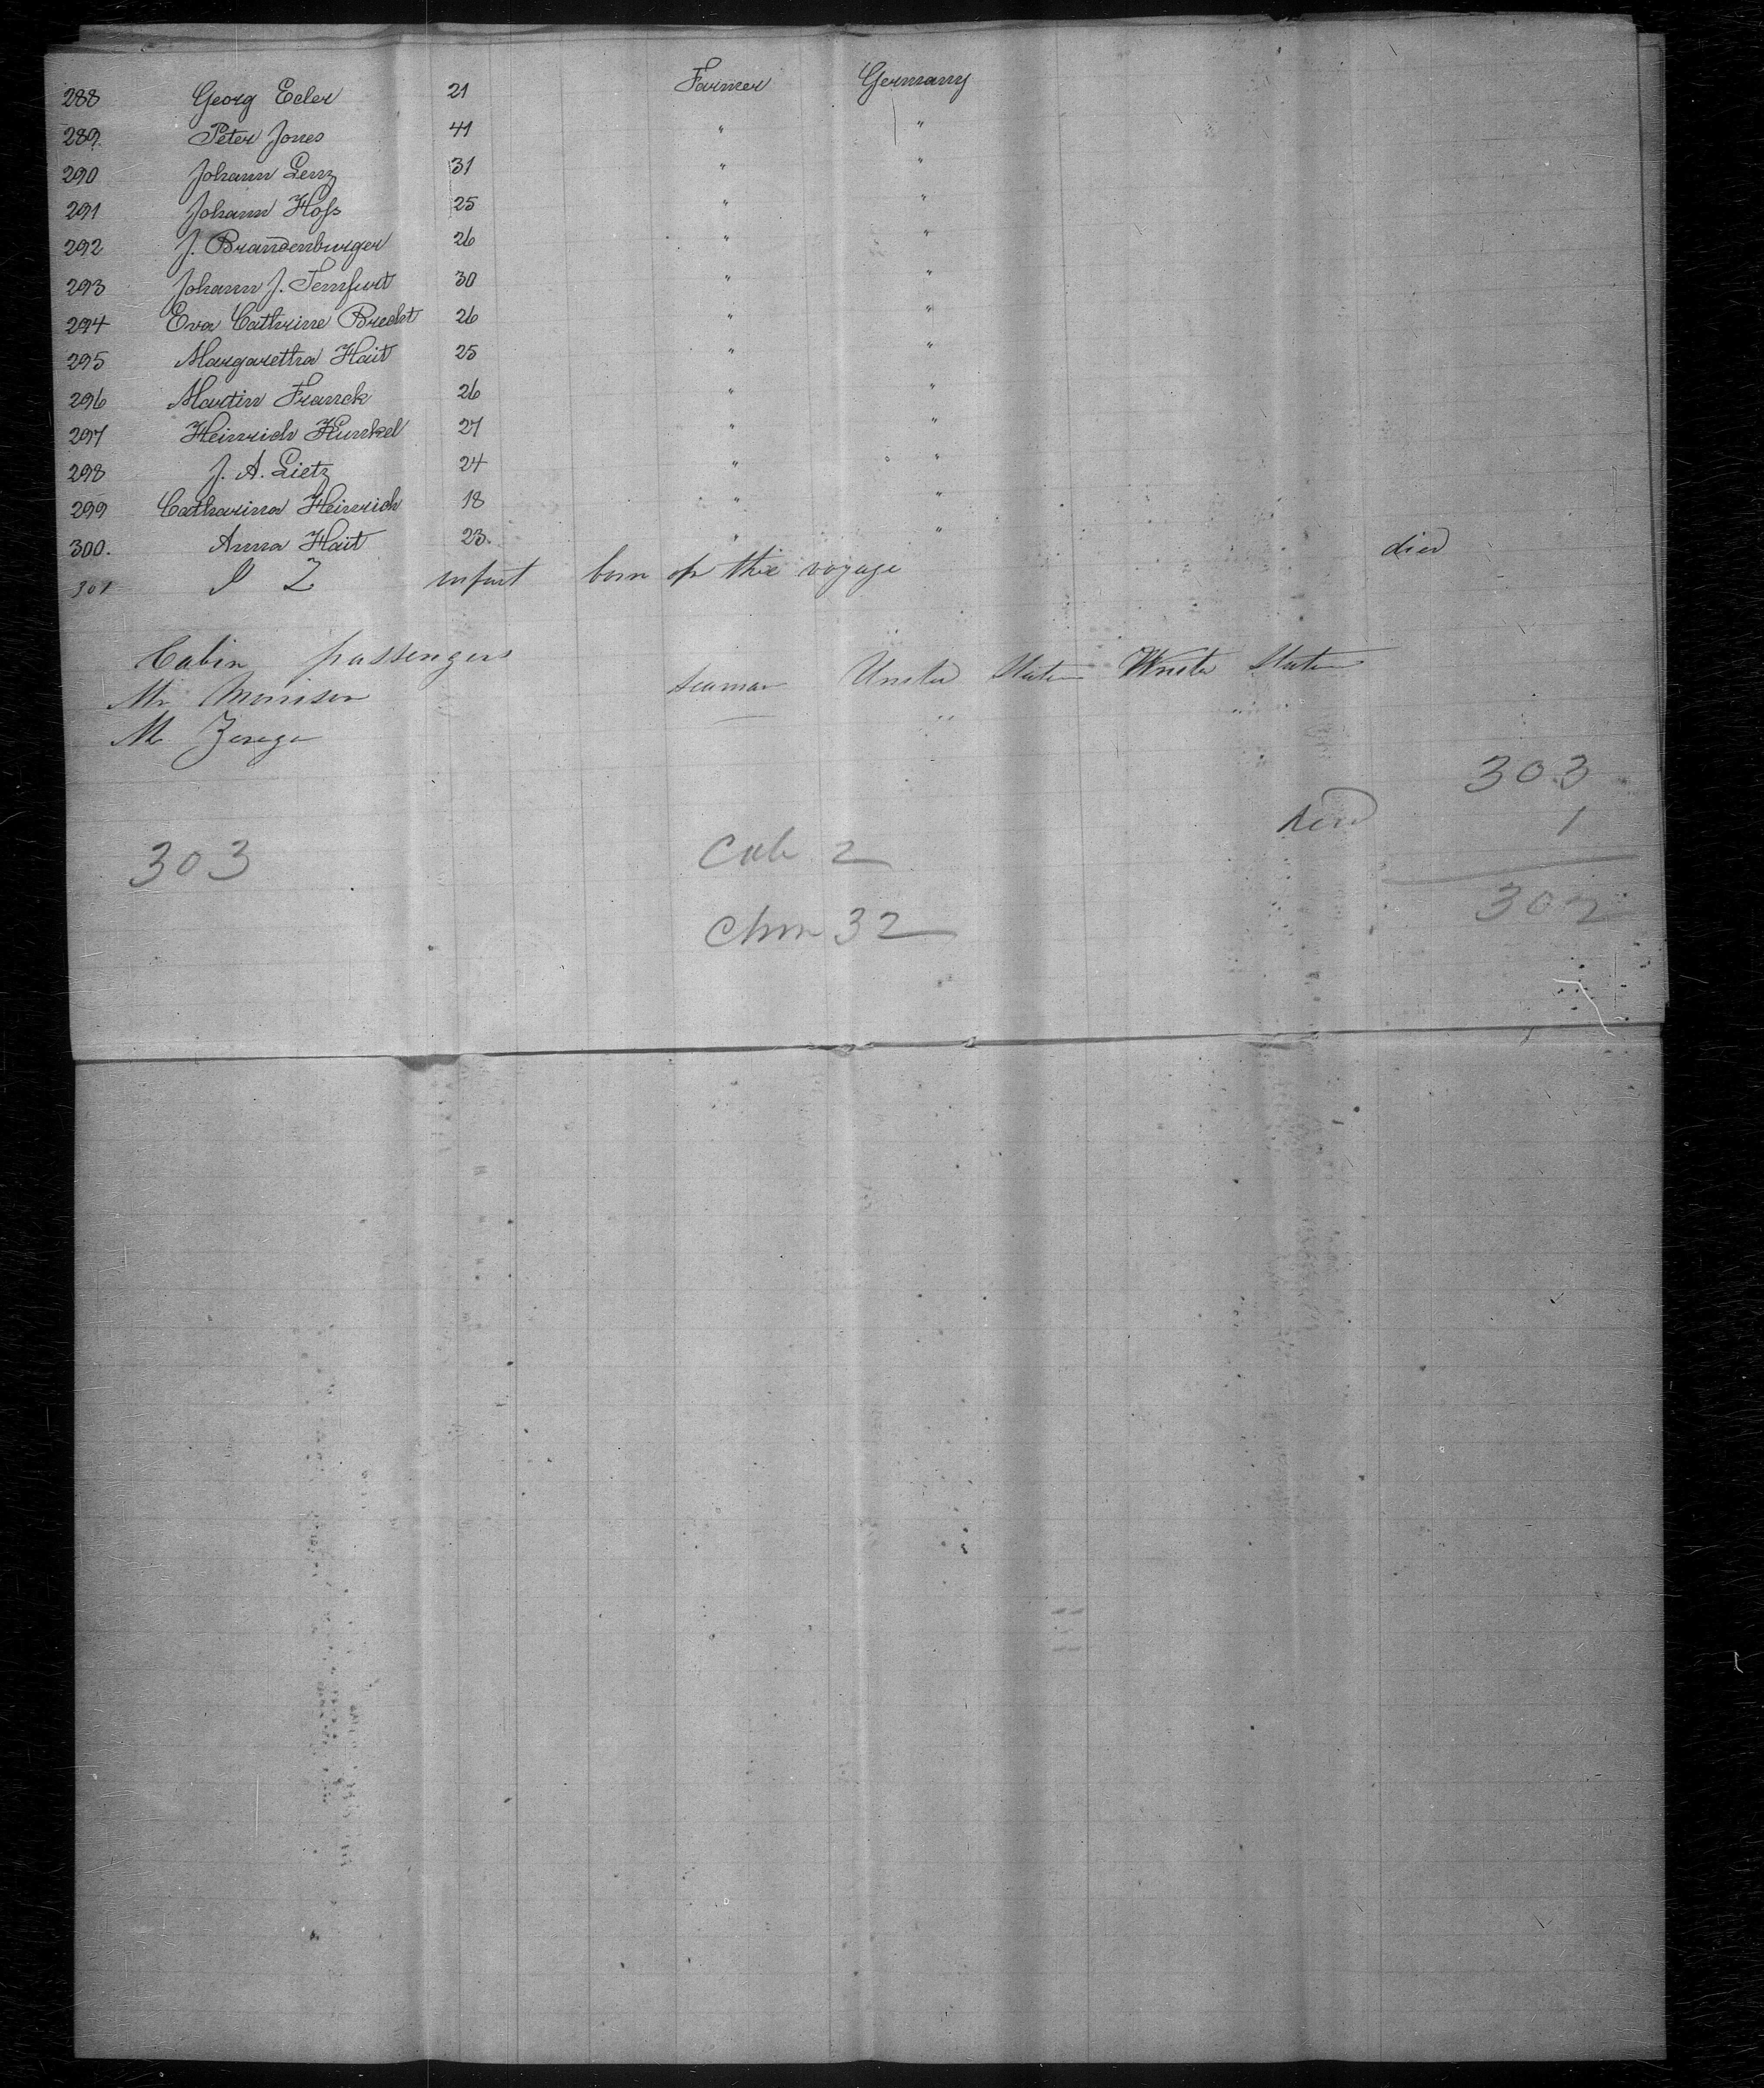 288 Georg Ecler 21 Farmer Germany
289. Peter Jones 41 " "
290 Johann Lenz 31 " "
291 Johann Hofs 25 " "
292 J. Brandenburger 26 " "
293 Johann J. Temfurt 30 " "
294 Eva Cathrine Brecht 26 " "
295 Margaretha Hait 25 " "
296 Martin Franck 26 " "
297 Heinrich Kunkel 27 " "
298 J. A. Lietz 24 " "
299 Catharina Heinrich 18 " "
300. Anna Hait 23. " " died
301 infant born on the voyage
Cabin passengers
Mr Morrison Seaman United States United States
M Zerega "
303
died 1
303 Cab 2
302
Chn 32